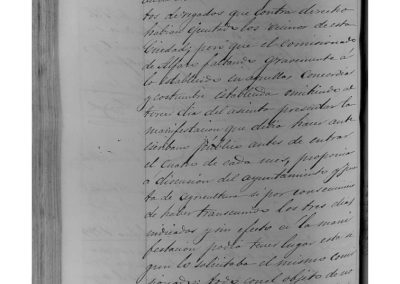 tos arrogados que contra derecho
habian guntado los vecinos de esta
Ciudad; pero que el comisionado
de Alfaro faltando gravemente á
lo establecido en aquellas Concordias
y costumbre establecida omitiendo al
tercer dia del asiento presentar la
manifestacion que debia hacer ante
escribano público antes de entrar
el cuatro de cada mes, proponia
a discusion del ayuntamiento y Jun
ta de agricultura si por consecuencia
de haber transcurrido los tres dias
indicados y sin efecto en la mani
festacion podia tener lugar esta a
que lo solicitaba el mismo comi
sionado; todo con el objeto de no